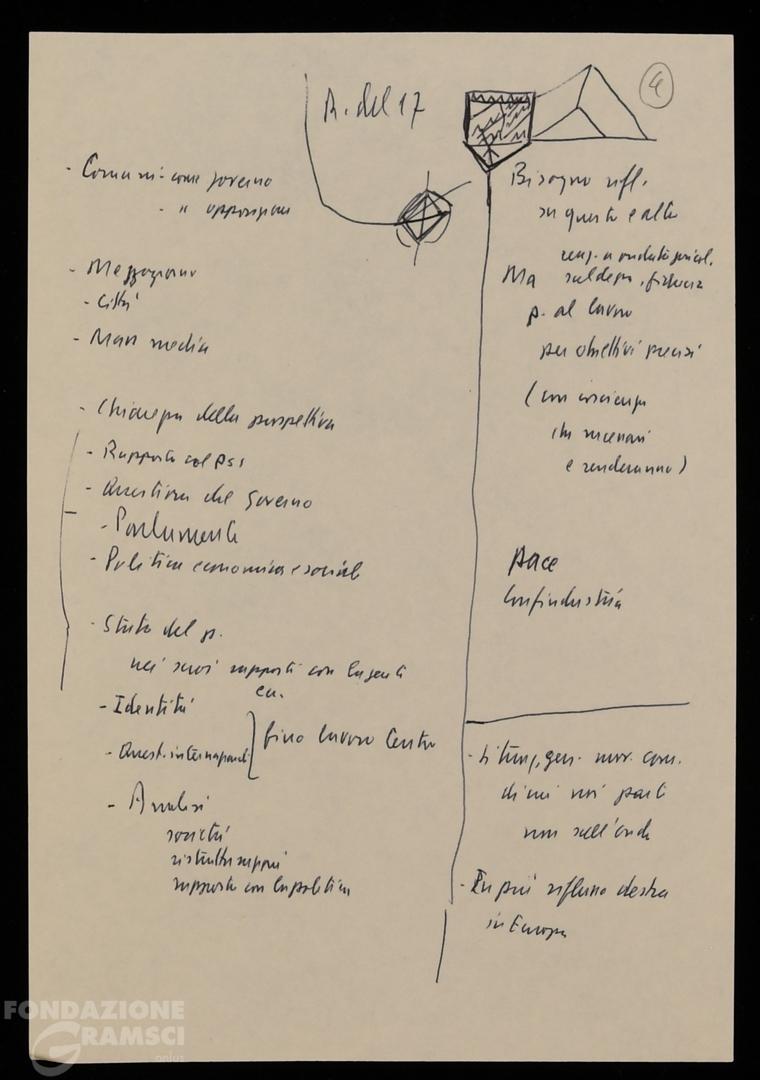 R. del 17
4
- Comuni - come governo
- " opposizione
- Mezzogiorno
- Città
- Mass media
- Chiarezza della prospettiva
- Rapporti col PSI
- Questione del governo
- Parlamento
- Politica economica e sociale
- Stato del p.
nei suoi rapporti con la gente
ecc.
- Identità
- Quest. internazionali
fino lavoro Centro
- Analisi
società
ristrutturazioni
rapporto con la politica
Bisogno rifl.
su questo e altro
Ma saldezza, fiducia
p. al lavoro
per obiettivi precisi
(con coscienza
che
e renderanno)
pace
Confindustria
- Situaz. gen. mov. com.
di cui noi parte
non sull'onda
- In più riflusso destra
in Europa
FONDAZIONE
GRAMSCI
onlus